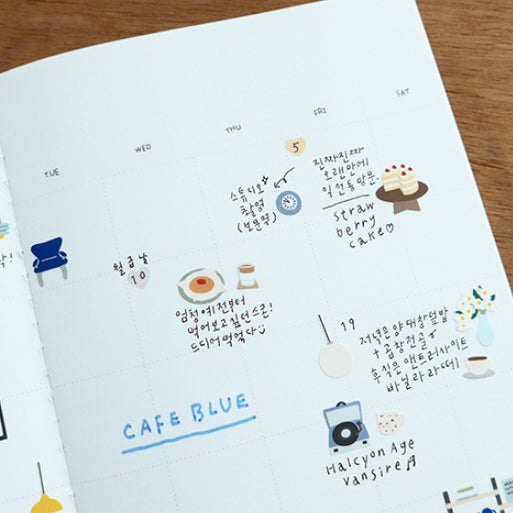 TUE
WED
THU
FRI
SAT
5
스튜디오
촬영
(보문역)
진짜진짜
오랜만에
익선동방문
straw
berry
cake♡
월급날
10
엄청예전부터
먹어보고싶던스콘!
드디어먹었다
19
저녁은양대창덮밥
+곱창전골
후식은앤트러사이트
바닐라라떼
CAFE BLUE
Halcyon Age
Vansire